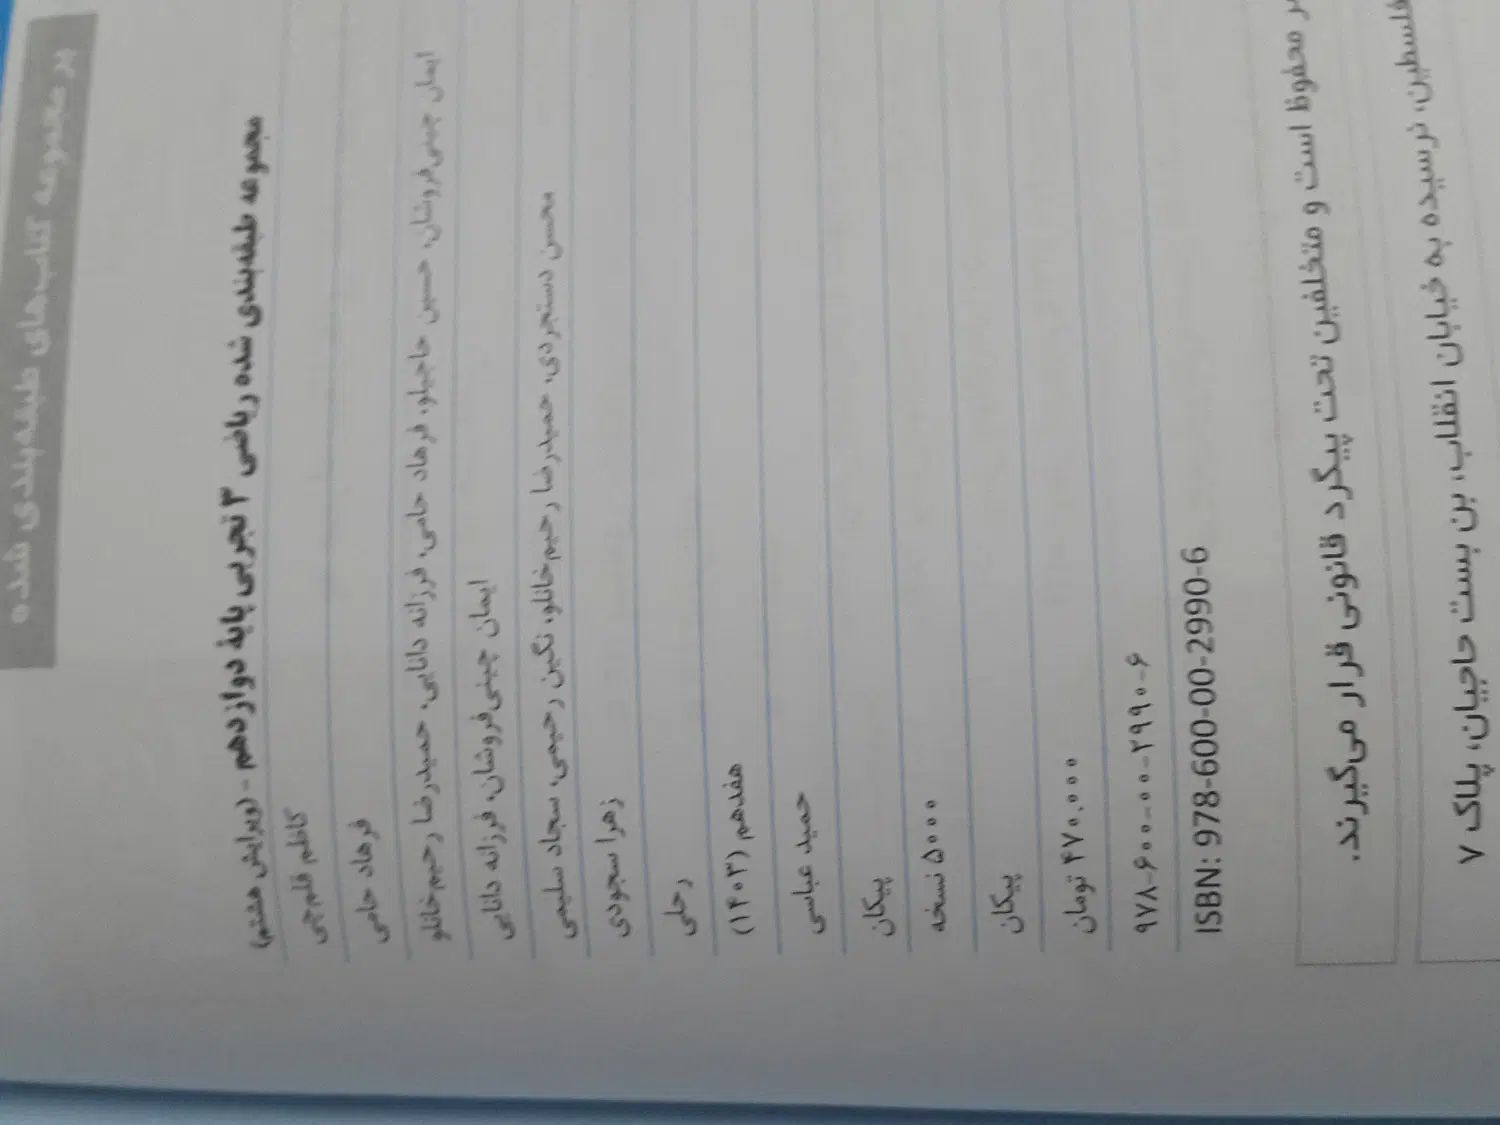 مجموعه کتاب‌های طبقه‌بندی شده
مجموعه طبقه‌بندی شده ریاضی ۳ تجربی پایۀ دوازدهم - (ویرایش هشتم)
کاظم قلم‌چی
فرهاد حامی
ایمان چینی‌فروشان، حسین حاجیلو، فرهاد حامی، فرزانه دانایی، حمیدرضا رحیم‌خانلو
ایمان چینی‌فروشان، فرزانه دانایی
محسن دستجردی، حمیدرضا رحیم‌خانلو، نگین رحیمی، سجاد سلیمی
زهرا سجودی
رحلی
هفدهم (۱۴۰۳)
حمید عباسی
پیکان
۵۰۰۰ نسخه
پیکان
۴۷۰.۰۰۰ تومان
۹۷۸-۶۰۰-۰۰-۲۹۹۰-۶
ISBN: 978-600-00-2990-6
محفوظ است و متخلفین تحت پیگرد قانونی قرار می‌گیرند.
فلسطین، نرسیده به خیابان انقلاب، بن بست حاجیان، پلاک ۷